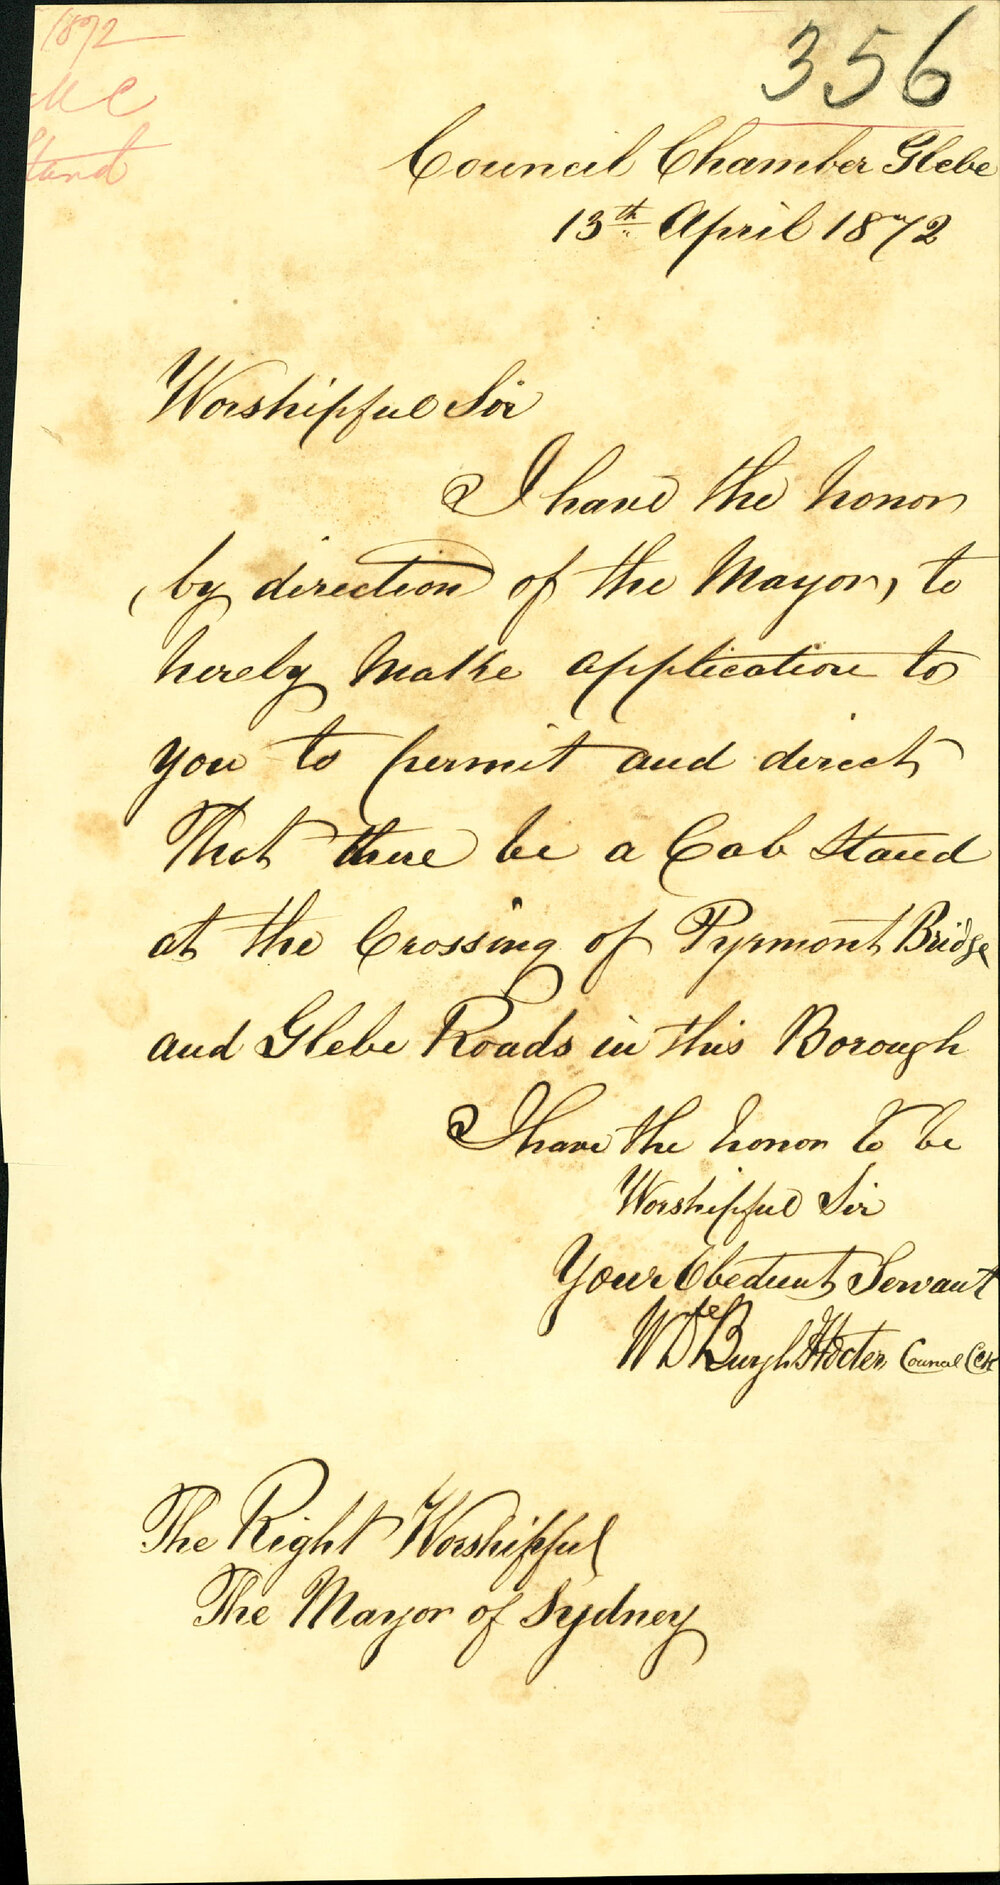 1872
MC
Stand
356
Council Chamber Glebe
13th April 1872
Worshipful Sir
I have the honor
by direction of the Mayor, to
hereby make application to
you to permit and direct
That there be a Cab Stand
at the Crossing of Pyrmont Bridge
and Glebe Roads in this Borough
I have the honor to be
Worshipful Sir
Your Obedient Servant
W De Burgh Hocter Council Clk
The Right Worshipful
The Mayor of Sydney